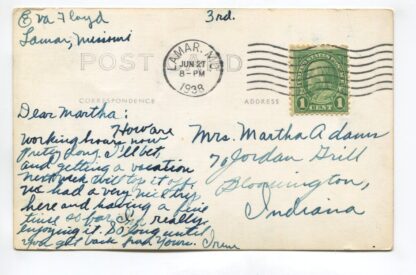 Eva Floyd 3rd.
Lamar, Missouri
POST CARD
LAMAR, MO.
JUN 27
8-PM
1938
UNITED STATES POSTAGE
1 CENT 1
CORRESPONDENCE ADDRESS
Dear Martha:
How are
working hours now
pretty low. I'll bet,
and getting a vacation
next week
we had a very nice trip
here and having a fine
time so far. I'm really
enjoying it. So long until
you get back from yours. Irene
Mrs. Martha Adams
% Jordan Grill
Bloomington,
Indiana